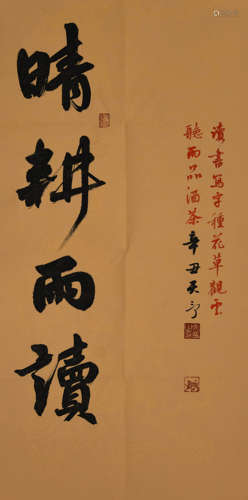 晴耕雨讀
讀書寫字種花草觀雲
聽雨品酒茶 辛丑天